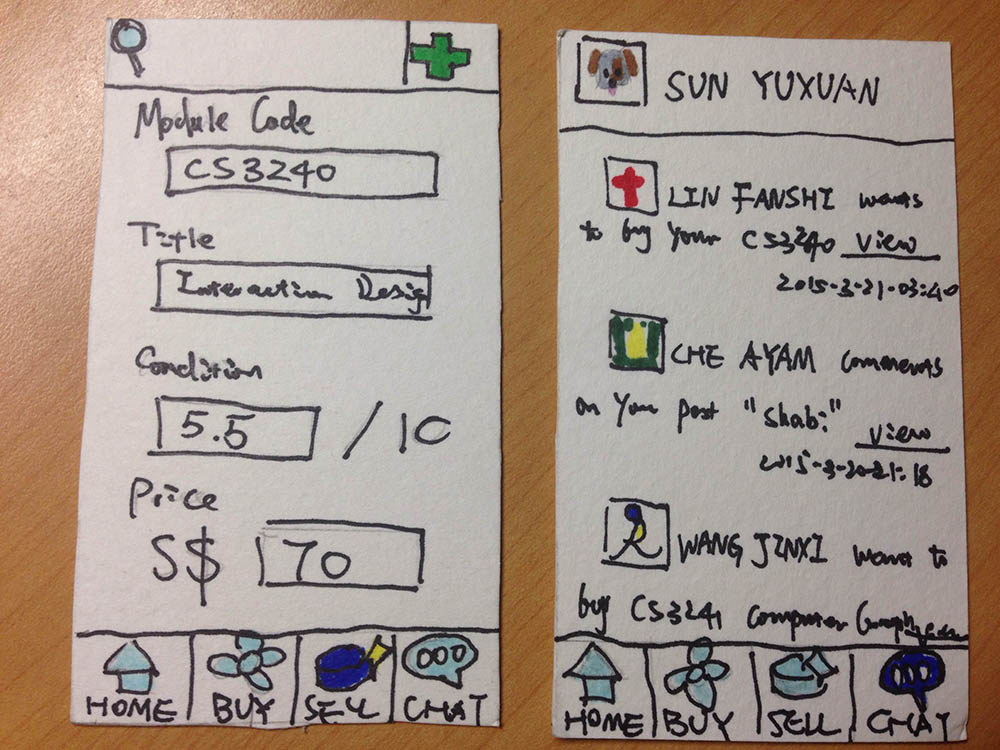 Module Code
CS3240
Title
Interaction Desig
Condition
5.5 / 10
Price
S$ 70
HOME BUY SELL CHAT
SUN YUXUAN
LIN FANSHI wants
to buy your CS3240 view
2015-3-21-03:40
CHE AYAM comments
on your post "Shabi" view
2015-3-20-21:18
WANG JINXI want to
buy CS3241 Computer
HOME BUY SELL CHAT